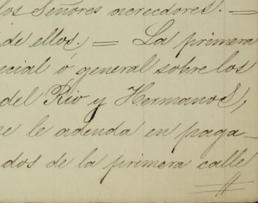 los Señores acreedores. —
de ellos. — La primera
ecial ó general sobre los
del Rio y Hermanos,
e le adeuda en paga
dos de la primera calle